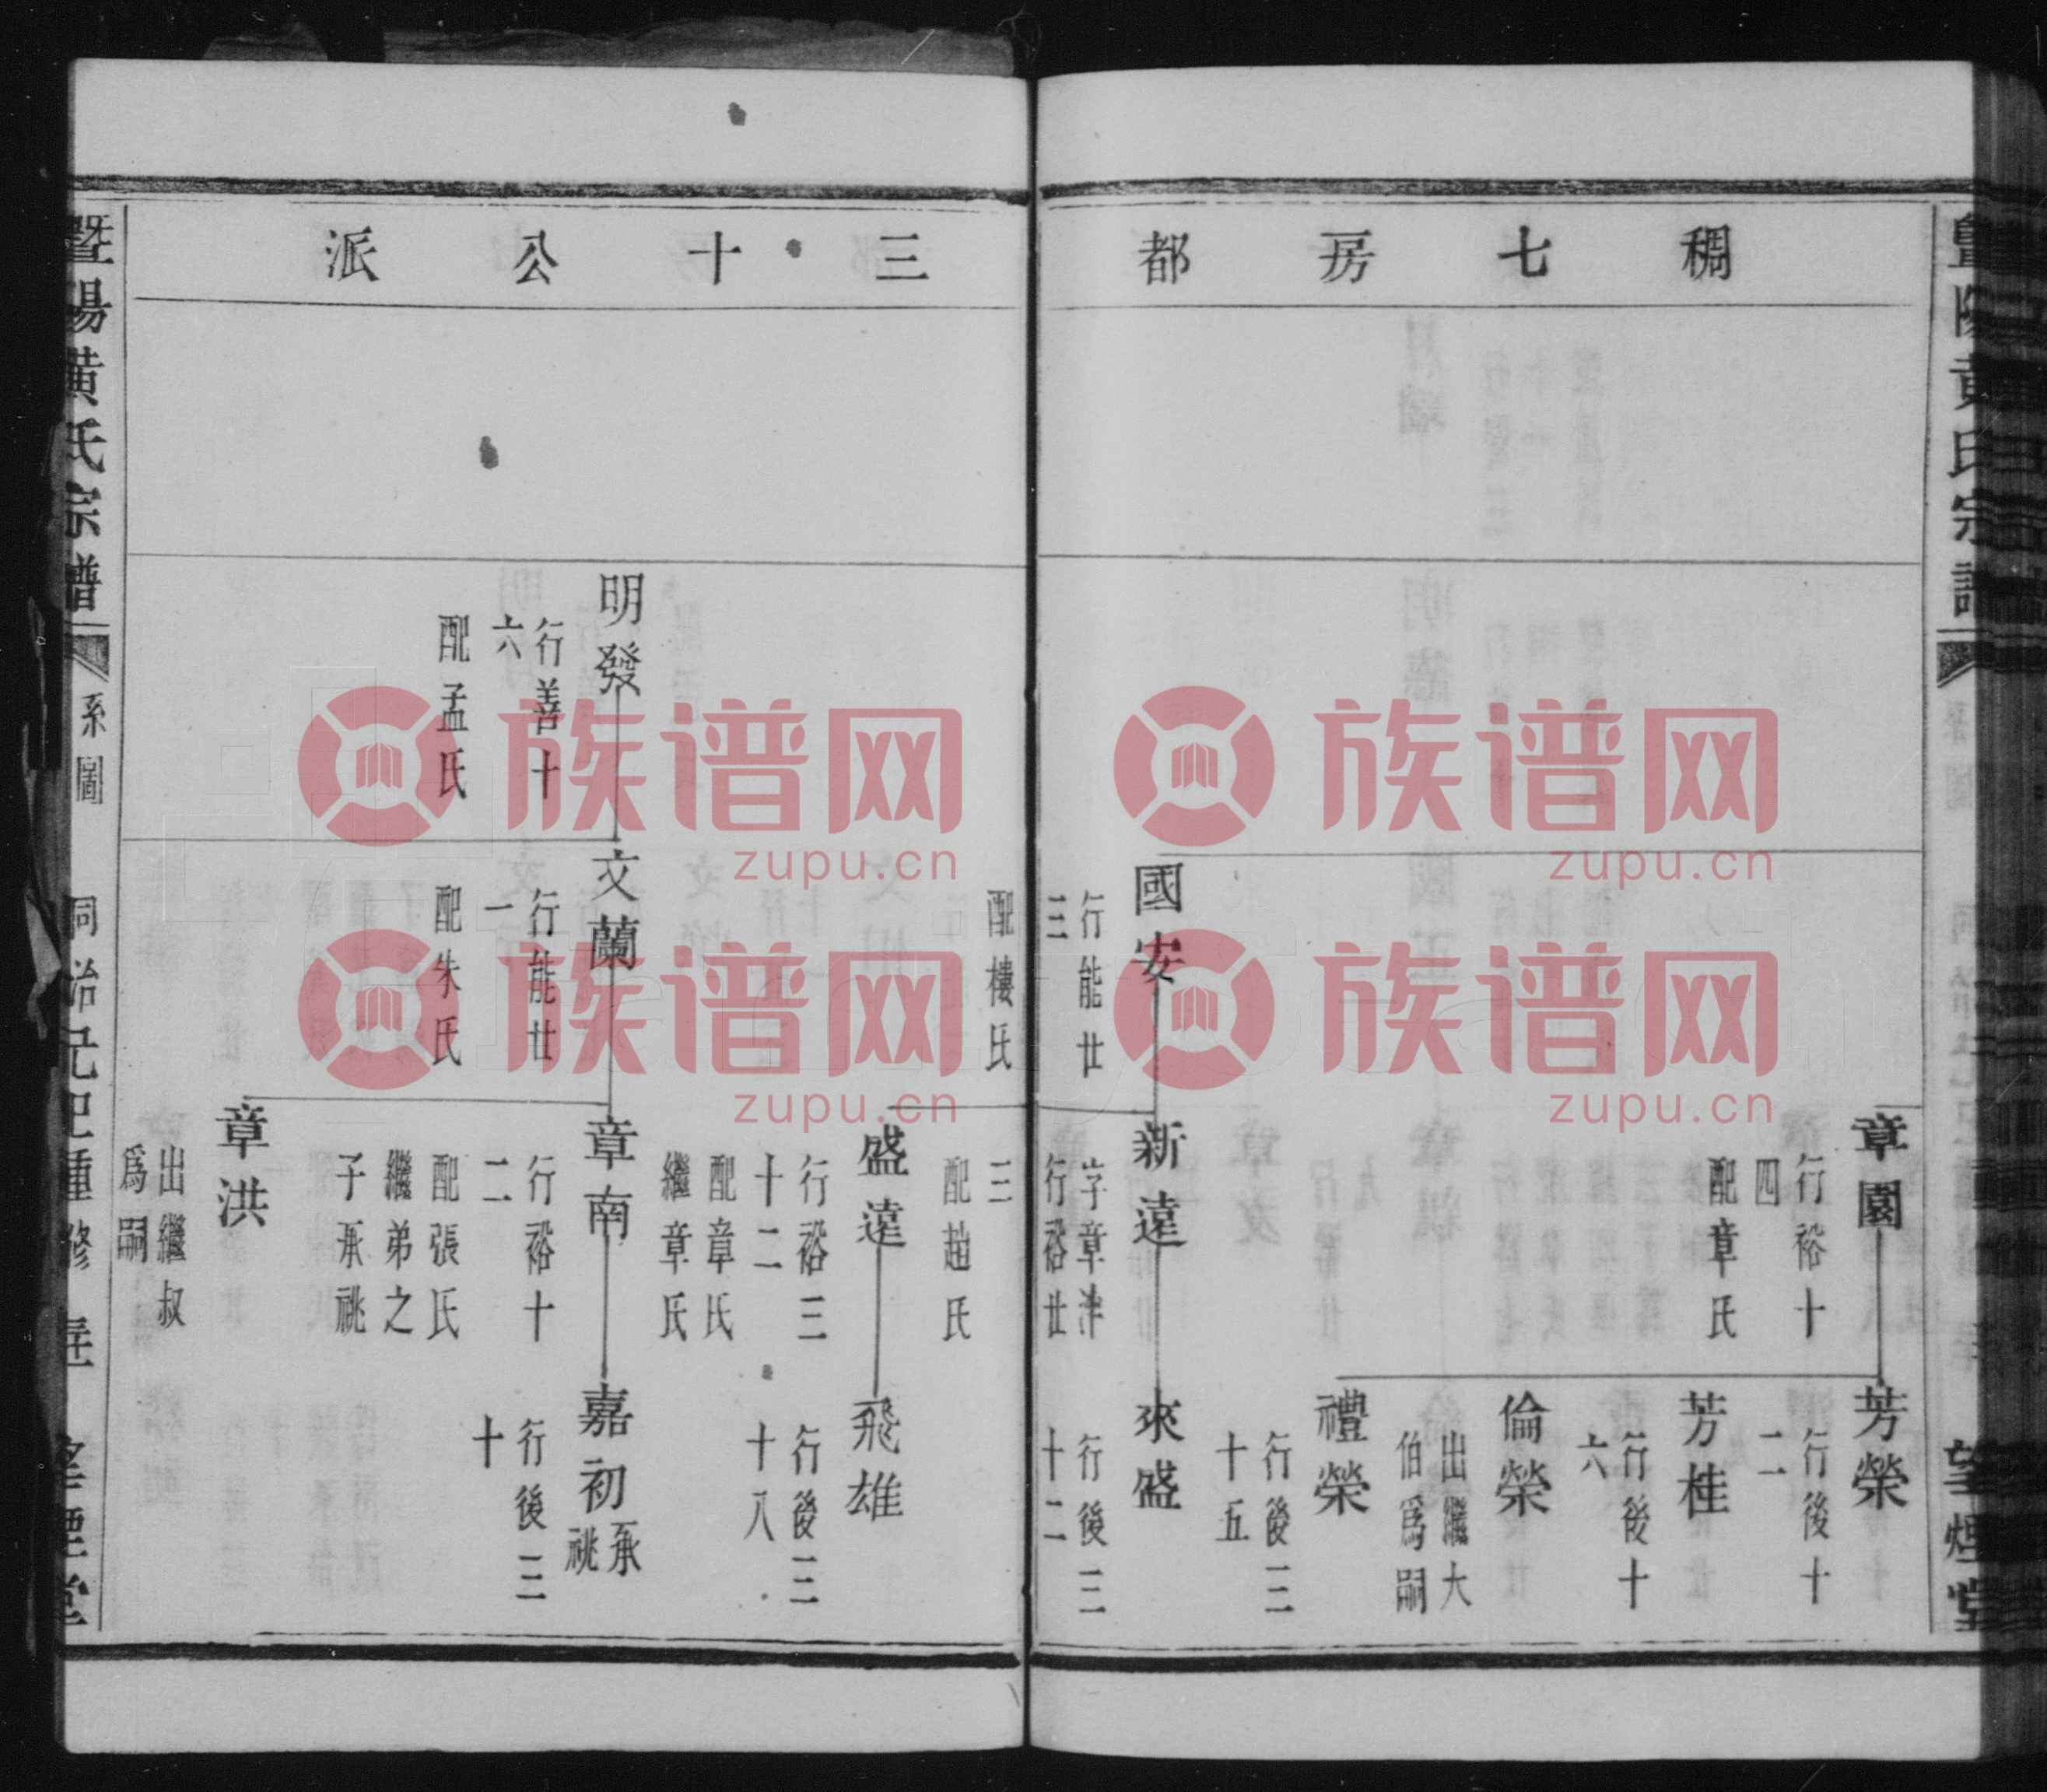 稠七房都
三十公派
章園
行裕十
四
配章氏
芳榮
行後十
二
芳桂
行後十
六
倫榮
出繼大
伯爲嗣
禮榮
行後三
十五
國安
行能廿
三
配樓氏
新遠
字章津
行裕廿
三
配趙氏
來盛
行後三
十二
盛遠
行裕三
十二
配章氏
繼章氏
飛雄
行後三
十八
明發
行善十
六
配孟氏
文蘭
行能廿
一
配朱氏
章南
行裕十
二
配張氏
繼弟之
子承祧
嘉初承祧
行後三
十
章洪
出繼叔
爲嗣
暨陽黃氏宗譜
系圖
同治己巳重修
望煙堂
族谱网
zupu.cn
族谱网
zupu.cn
族谱网
zupu.cn
族谱网
zupu.cn